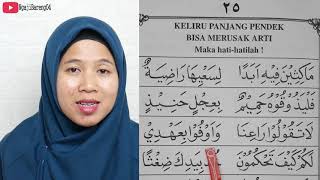 NgajiBareng04
٢٥
KELIRU PANJANG PENDEK
BISA MERUSAK ARTI
Maka hati-hatilah !
مَاكِثِيْنَ فِيْهِ اَبَدًا لِسَعْيِهَا رَاضِيَةٌ
فَلْيَذُوْقُوْهُ حَمِيْمٌ بِعِجْلٍ حَنِيْذٍ
لَا تَقُوْلُوْا رَاعِنَا وَاَوْفُوْا بِعَهْدِيْ
لَكُمْ كَيْفَ تَحْكُمُوْنَ بِيَدِكَ ضِغْثًا